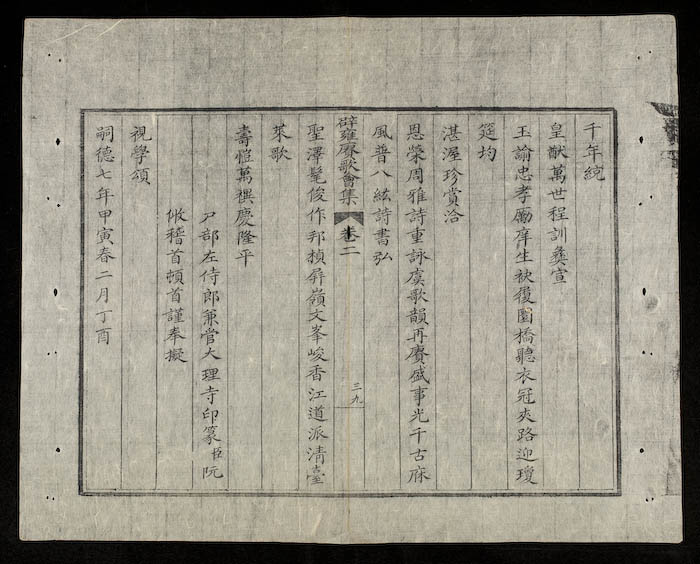 千年統
皇猷萬世程訓彝宣
玉諭忠孝勵庠生袂履圜橋聽衣冠夾路迎瓊
筵均
湛渥珍賞洽
恩榮周雅詩重詠虞歌韻再賡盛事光千古庥
風普八紘詩書弘
辟雍賡歌會集 卷二 三九
聖澤髦俊作邦楨屏嶺文峯峻香江道派清臺
萊歌
壽愷萬禩慶隆平
戸部左侍郎兼管大理寺印篆臣阮
攸稽首頓首謹奉擬
視學頌
嗣德七年甲寅春二月丁酉